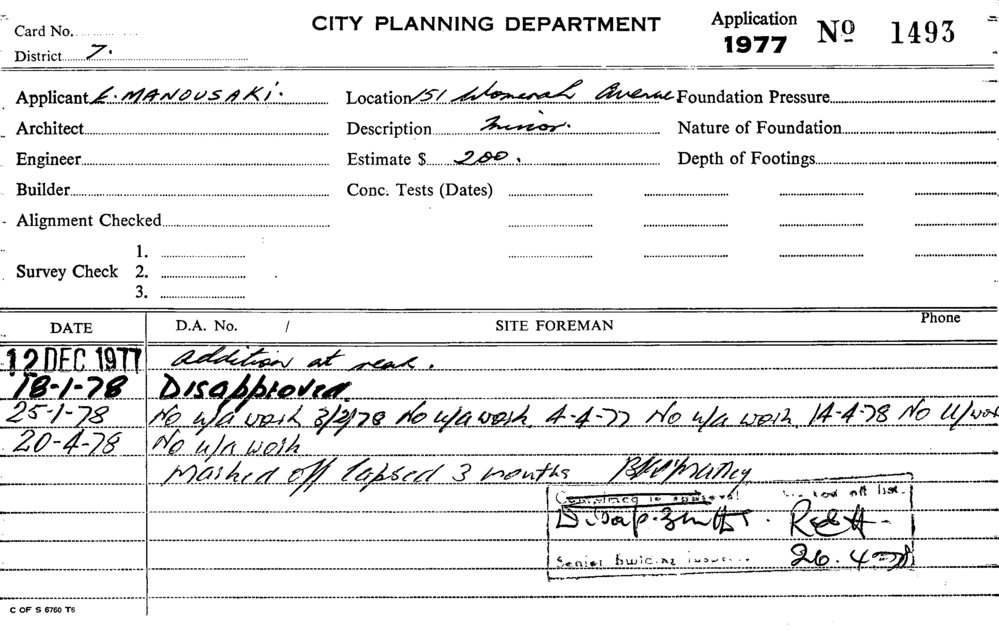 Card No. CITY PLANNING DEPARTMENT Application 1977 No 1493
District 7.
Applicant E. MANOUSAKI. Location 151 Womerah Avenue Foundation Pressure
Architect Description minor. Nature of Foundation
Engineer Estimate $ 200. Depth of Footings
Builder Conc. Tests (Dates)
Alignment Checked
1.
Survey Check 2.
3.
DATE D.A. No. / SITE FOREMAN Phone
12 DEC 1977 addition at rear.
18-1-78 Disapproved.
25-1-78 No u/a work 3/2/78 No u/a work 4-4-77 No u/a work 14-4-78 No U/work
20-4-78 No u/a work
Marked off lapsed 3 months
off list.
Senior Building
26.4.78
C OF S 6760 T6